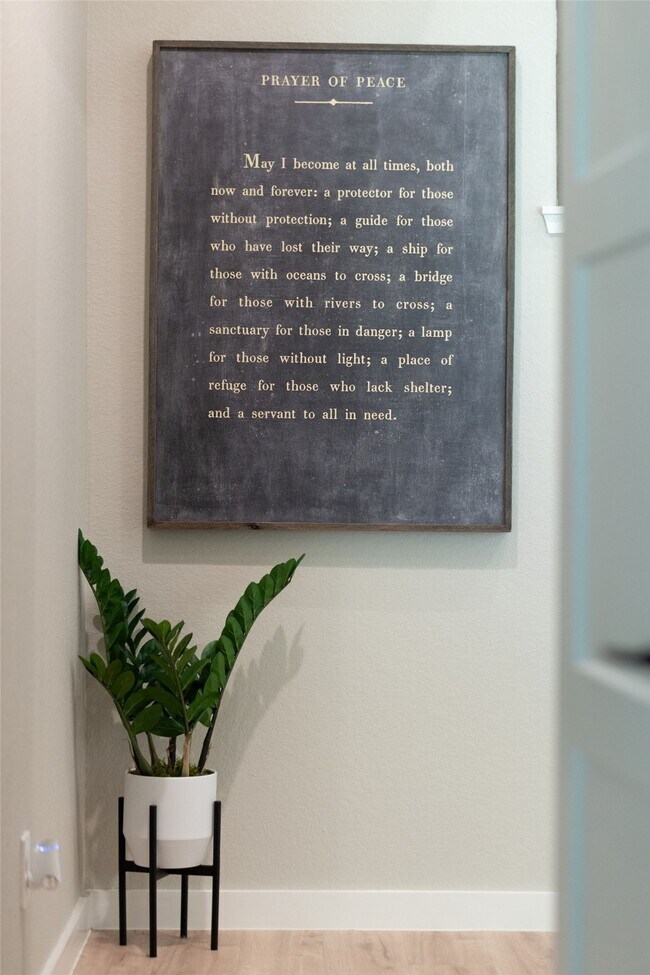 PRAYER OF PEACE
May I become at all times, both
now and forever: a protector for those
without protection; a guide for those
who have lost their way; a ship for
those with oceans to cross; a bridge
for those with rivers to cross; a
sanctuary for those in danger; a lamp
for those without light; a place of
refuge for those who lack shelter;
and a servant to all in need.